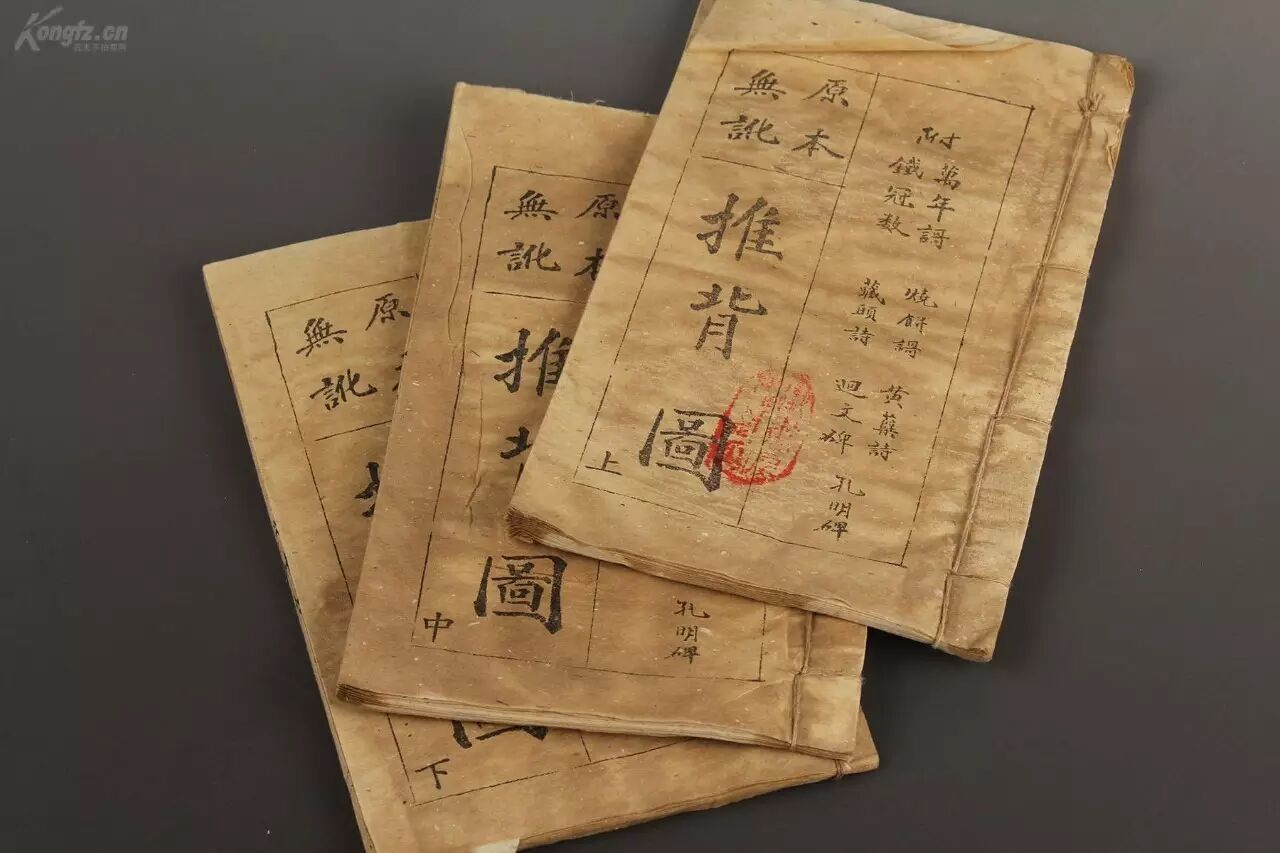 Kongfz.cn
附萬年謌
鐵冠数
燒餅謌
藏頭詩
黄蘗詩
迴文碑
孔明碑
原本
無訛
推背圖
上
原本
無訛
推背圖
中
孔明碑
原
無訛
下